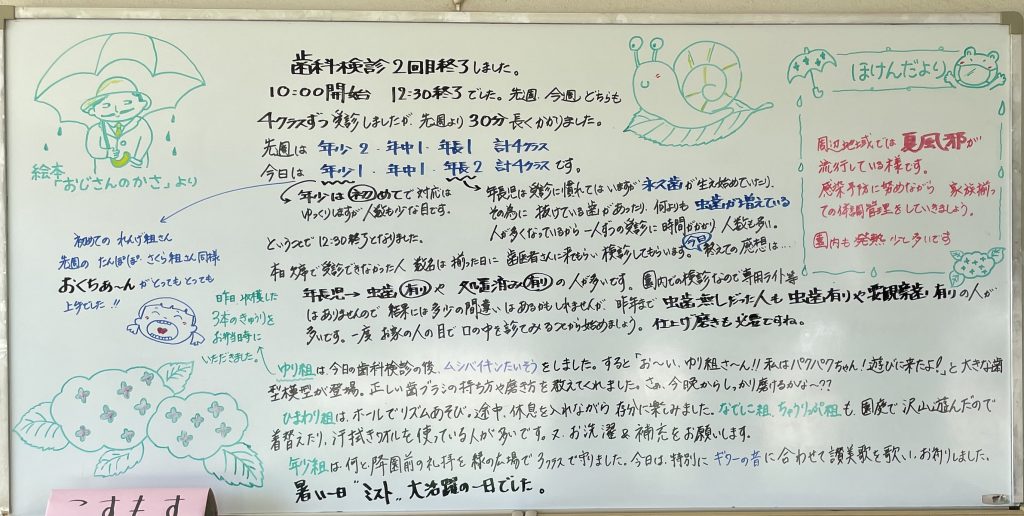 歯科検診 2回目終了しました。
10:00開始 12:30終了でした。先週、今週どちらも
4クラスずつ受診しましたが、先週より30分長くかかりました。
先週は 年少2・年中1・年長1 計4クラス
今日は 年少1・年中1・年長2 計4クラスです。
年少は初めてで対応は
ゆっくりますが人数も少な目です。
年長児は受診に慣れてはいますが永久歯が生え始めていたり、
その為に抜けている歯があったり、何よりも虫歯が増えている
人が多くなっているから一人ずつの受診に時間がかかり人数も多い。
というコで12:30終了となりました。
本日欠席で受診できなかった人数名は揃った日に歯医者さんに来てもらい検診してもらいます。
今日
終えての感想は…
年長児→虫歯有りや処置済み有りの人が多いです。園内での検診なので専用ライト等
はありませんので結果には多少の間違いはあるかもしれませんが、昨年まで虫歯無しだった人も虫歯有りや要観察歯有りの人が
多いです。一度お家の人の目で口の中を診てみるコから始めましょう。仕上げ磨きも必要ですね。
ゆり組は今日の歯科検診の後、ムシバイキンたいそうをしました。すると「お〜い、ゆり組さ〜ん!!私はパクパクちゃん!遊びに来たよ!」と大きな歯
型模型が登場。正しい歯ブラシの持ち方や磨き方を教えてくれました。さぁ、今晩からしっかり磨けるかな〜??
ひまわり組は、ホールでリズムあそび。途中、休息を入れながら存分に楽しみました。なでしこ組、ちゅうりっぷ組も、園庭で沢山遊んだので
着替えたり、汗拭きタオルを使っている人が多いです。又、お洗濯&補充をお願いします。
年少組は何と降園前の礼拝を緑の広場で3クラスで守りました。今日は、特別にギターの音に合わせて讃美歌を歌い、お祈りしました。
暑い一日 "ミスト" 大活躍の一日でした。
絵本
「おじさんのかさ」より
初めての れんげ組さん
先週の たんぽぽ・さくら組さん同様
おくちあ〜ん がとってもとっても
上手でした!!
昨日収穫した
3本のきゅうりを
お弁当時に
いただきました。
ほけんだより
周辺地域では夏風邪が
流行している様です。
感染予防に努めながら 家族揃
っての体調管理をしていきましょう。
園内も発熱 少し多いです
こすもす